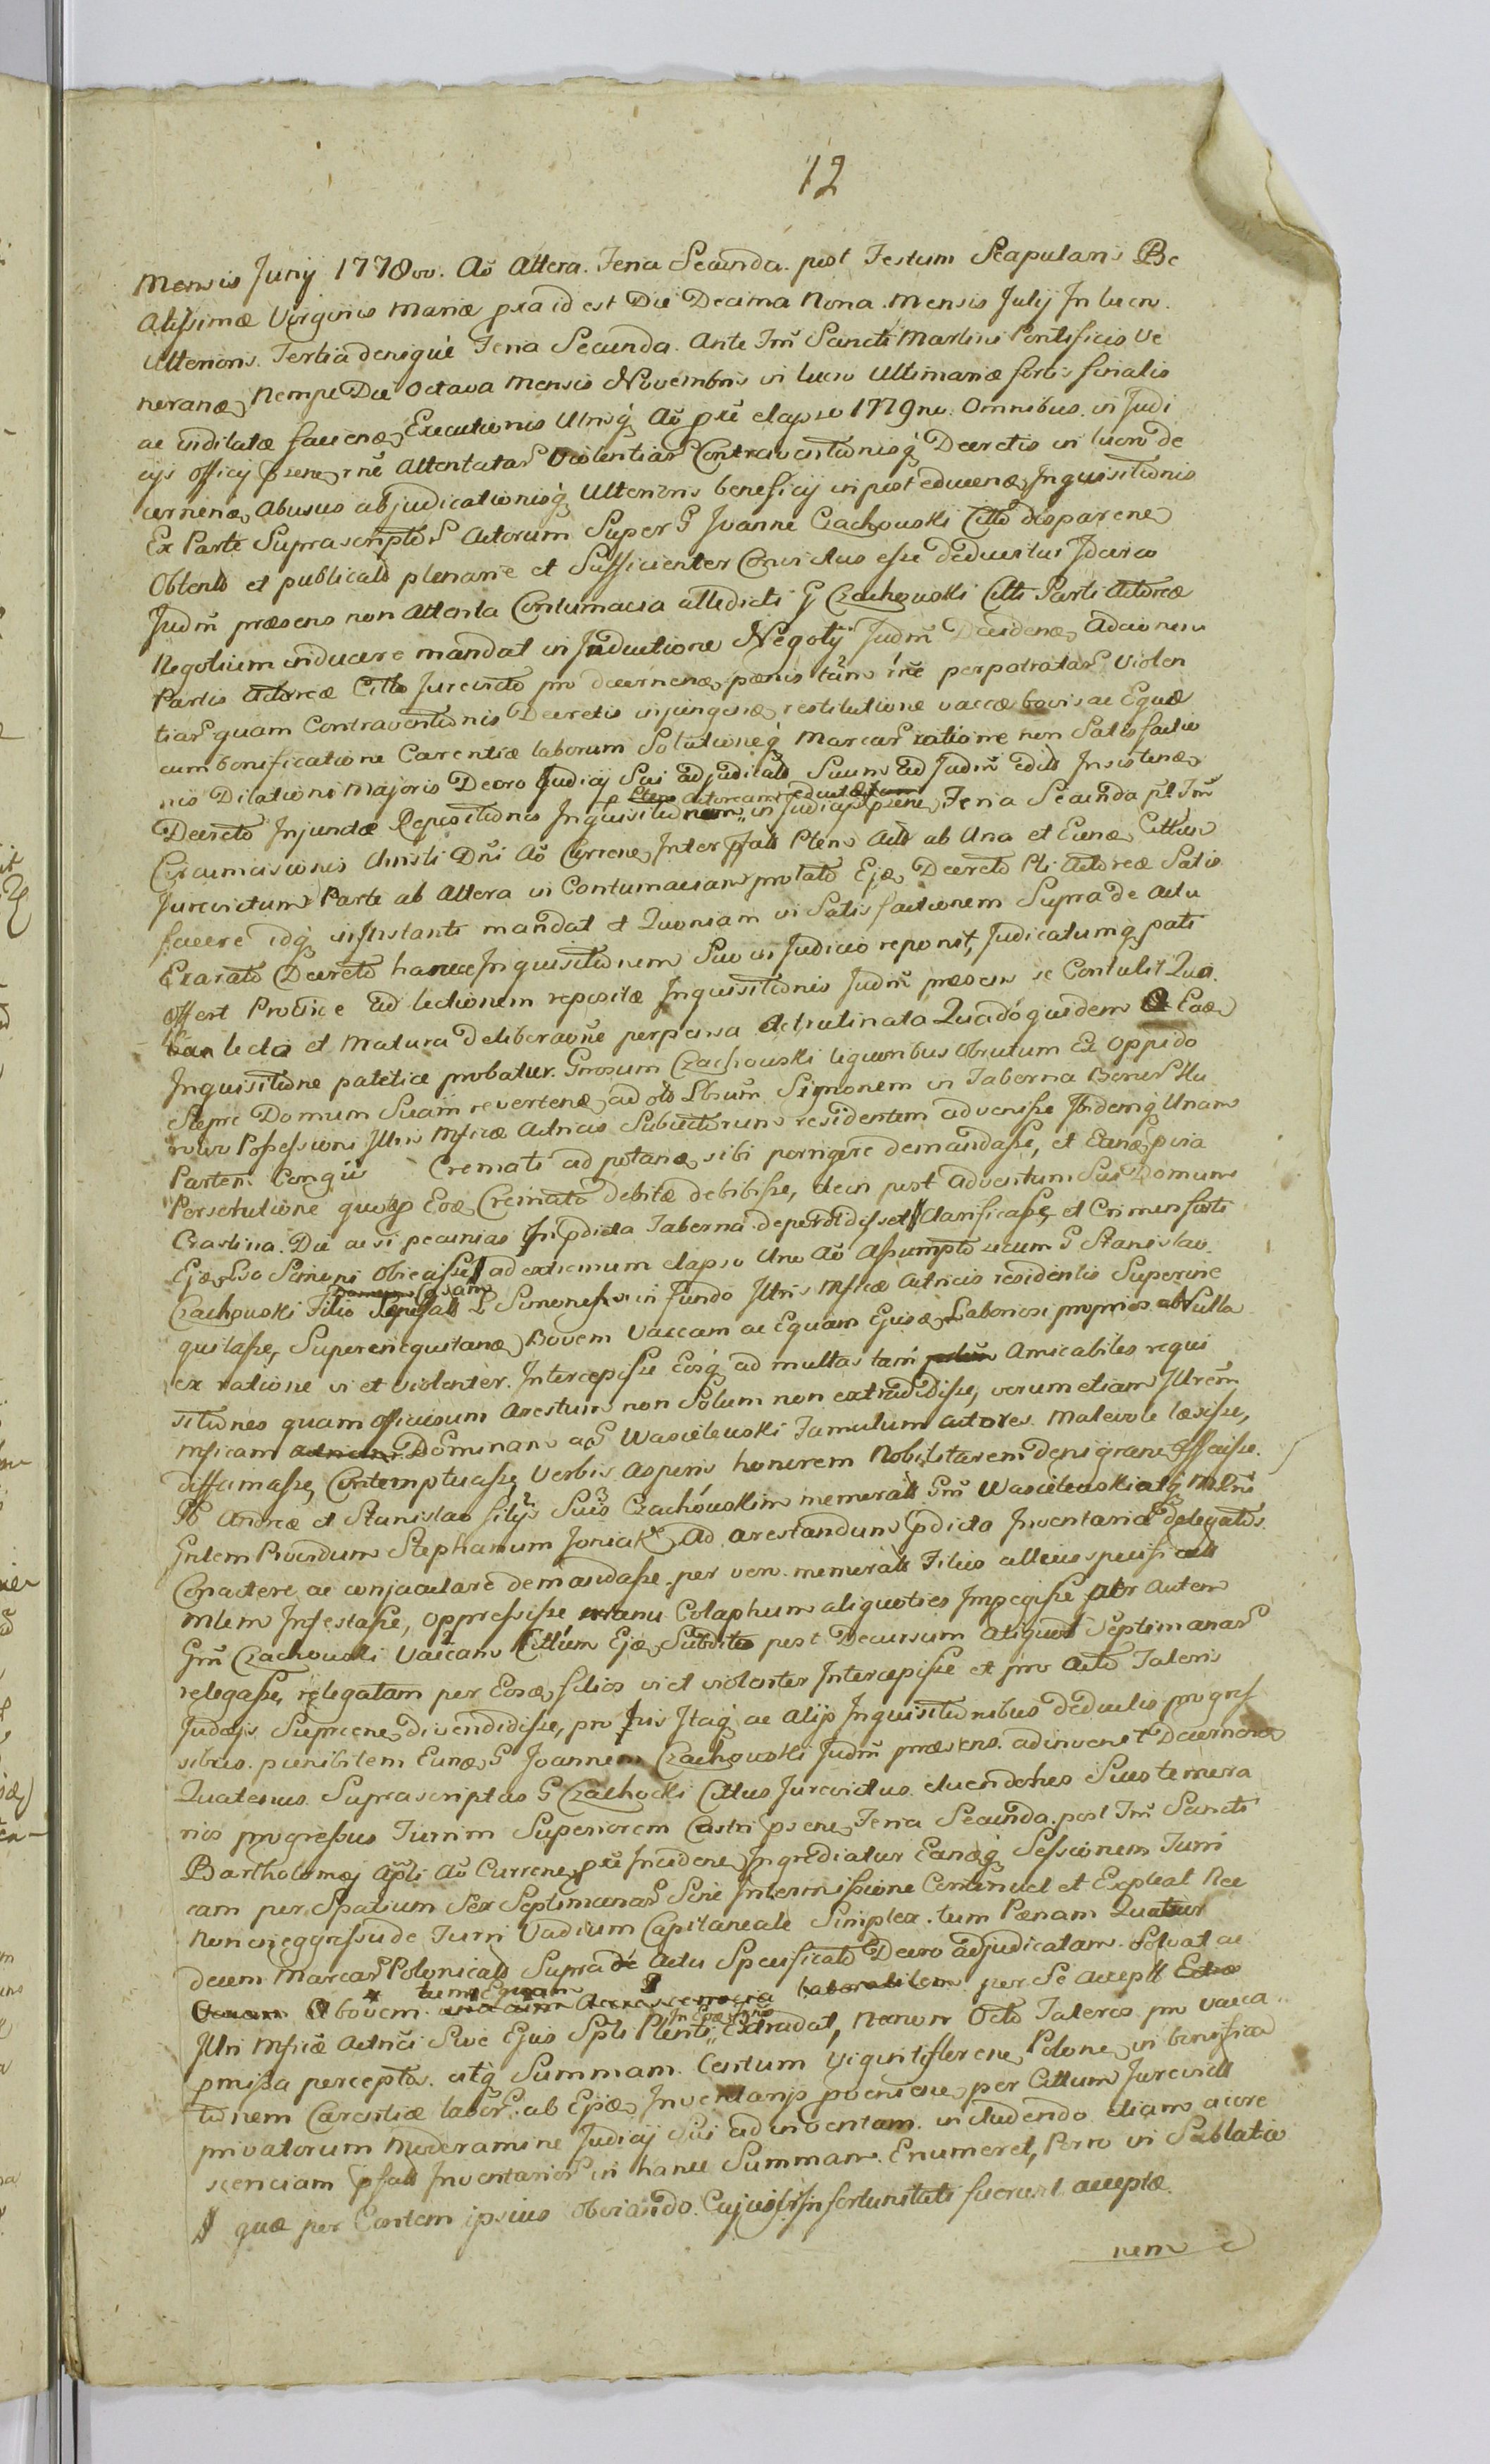 12
Mensis Junij 1778vo. Aō Altera. Feria Secunda. post Festum Scapularis Be
atissimæ Virginis Mariæ pxa id est Die Decima Nona. Mensis Julij In lucro
Ulterioris. Tertia deniqué Feria Secunda. Ante Fm̄ Sancti Martini Pontificis Ve
neranæ, Nempe Die Octava Mensis Novembris in lucro Ultimariæ fortis finalis
ac inditatæ faciene, Executionis Utriusq Aō px̄e elapso 1779no. Omnibus. in Judi
cijs Officij psene, rn̄e Attentatar Violentiar Contraventionisq Decretis in lucro de
cernenæ, Abusus abjudicationisq Ulterioris beneficij in post educenæ, Inquisitionis
Ex Parte Suprascriptor Actorum Super G Joanne Czachowski Citto disparene
Obtento et publicato plenarie et Sufficienter Convictus esse deducitur Idcirco
Judm̄ præsens non Attenta Contumacia attedicti G Czachowski Citti Parti Actoreæ
Negotium inducere mandat in Inductione Negotij Judm̄ Decidenæ, Adcionem
Partis Actoreæ Citto Jurevicto pro decernenæ, pænis tam rn̄e perpetratar Violen
tiar quam Contraventionis Decretis injungenæ, restitutione vaccæ bovis ac Equæ
cum bonificatione Carentiæ laborum Solutioneq Marcar ratione non Satisfactio
nis Dilationi Majoris Decro Judicij Sui adjudicato Suum ad Judm̄ edito Insistenæ,
p Pten Actoream eductarum
Decreto Injunctæ Repositionis Inquisitionum in Judicijs psene, Feria Secunda pt Fm̄
Circumcisionis Christi Dni Aō Currene, Inter pfato Pten Acto ab Una et Eunæ, Cittum
Jurevictum Parte ab Altera in Contumaciam prolato Ejæ, Decreto Pti Actoreæ Satis
facere idq instanti mandat et Quoniam in Satisfactionem Supra de Actu
Exarato Decreto hance Inquisitionem Suo in Judicio reponit, Judicatumq pati
offert Proinde ad lectionem repositæ Inquisitionis Judm̄ præsens se Contulit Qua
lecta et Matura Deliberaōne perpensa et trutinata Quadóquidem Ex Eaæ
Inquisitione patetice probatur. Gnosum Czachowski liquoribus Obrutum Ex Oppido
Stepre Domum Suam revertenæ, ad oto Lbsum Simonem in Taberna Bonor Hu
Possessionis Illris Mficæ Actricis Subiectorum residentem advenisse Ibidemq Unam
Partem Congij Cremati ad potanæ, sibi porrigere demandasse, et Eanæ, p via
Persolutione quotæ Eoæ, Cremato debitæ debibisse, dein post Adventum Sui Domum
Crastina. Die ac si pecunias In pdicta Taberna deperdidisset Clarificasse, et Crimen furti
Ejæ, Lso Simoni Obiecisse ad extremum elapso Uno Aō Assumpto secum G Stanislao
Czachowski Filio L Simonesse in fundo Illris Mficæ Actricis residentis Superine
quitasse, Superinequitanæ, Bovem Vaccam ac Equam Ejusæ, Laboriosi proprios ab Nulla
ex ratione vi et violenter. Intercepisse Eosq ad multas tam Amicabiles requi
sitiones quam Officiosum Arestum non Solum non extradidisse, verum etiam Illrem̄
Mficam Dominam aG Wasielewski Famulum actores. Malevole læsisse,
diffamasse, Contemptuasse, Verbis Asperis honorem Nobilitarem denigrane, Effecisse.
Andreæ et Stanislao filijs Suis Czachówskim memerato Gm̄ Wasielewski atq Mlm̄
Gntem Providum Stephanum Joniak Ad arestandum pdicta Inventaria delegatos.
Conactere ac conjaculare demandasse. per vero. memerato Filios attius specificato
Mlem Infestasse, oppressisse Colaphum aliquoties Impegisse ptr Autem
Gm̄ Czachowski Vaccam Cittum Ejæ, Subdito post Decursum Aliquot Septimanar
relegasse, relegatam per Eosæ, filios vi et violenter Intercepisse et pro Acto Taleris
Judæjs Supreene, divendidisse, pro Ijis Itaq ac Alijs Inquisitionibus Deductis progres
sibus. punibilem Eunæ, G Joannem Czachowski Judm̄ præsens. adinvenit Decernene
Quatenus. Suprascriptus G Czachocki Cittus Jurevictus. eluendo hos Suos temera
rios progressus Turrim Superiorem Castri psene, Feria Secunda. post Fm̄ Sancti
Bartholomæj Apli Aō Currene, px̄e Incidene, Ingrediatur Eanæq Sessionem Turri
cam per Spatium Sex Septimanar Sine Intermissione Continuet et Expleat Nec
Non in eggressu de Turri Vadium Capitaneale Simplex. tum Pænam Quatuor
decem Marcar Polonicalo Supra de Actu Specificato Decro adjudicatam. Solvat ac
tum Equam
bovem. laborabilem per Se accepto
In Eoæ, fn̄o
Illri Mficæ Actrici Sive Ejus Spli Plenti Extradat, Necnon Octo Taleros pro vacca
pmissa perceptos. atq Summam. Centum Viginti flor ene, Polone, in bonifica
tionem Carentiæ labor. ab Ejsæ, Inventarijs provenien, per Cittum Jurevicto
privatorum Moderamine Judicij Sui adinventam. includendo etiam accre
scenciam pfato Inventarior in hance Summam. Enumeret, Porro in Sublatio
quæ per Eontem ipsius Obviando. Cujusvis Infortunitati fuerunt acceptæ.
nem